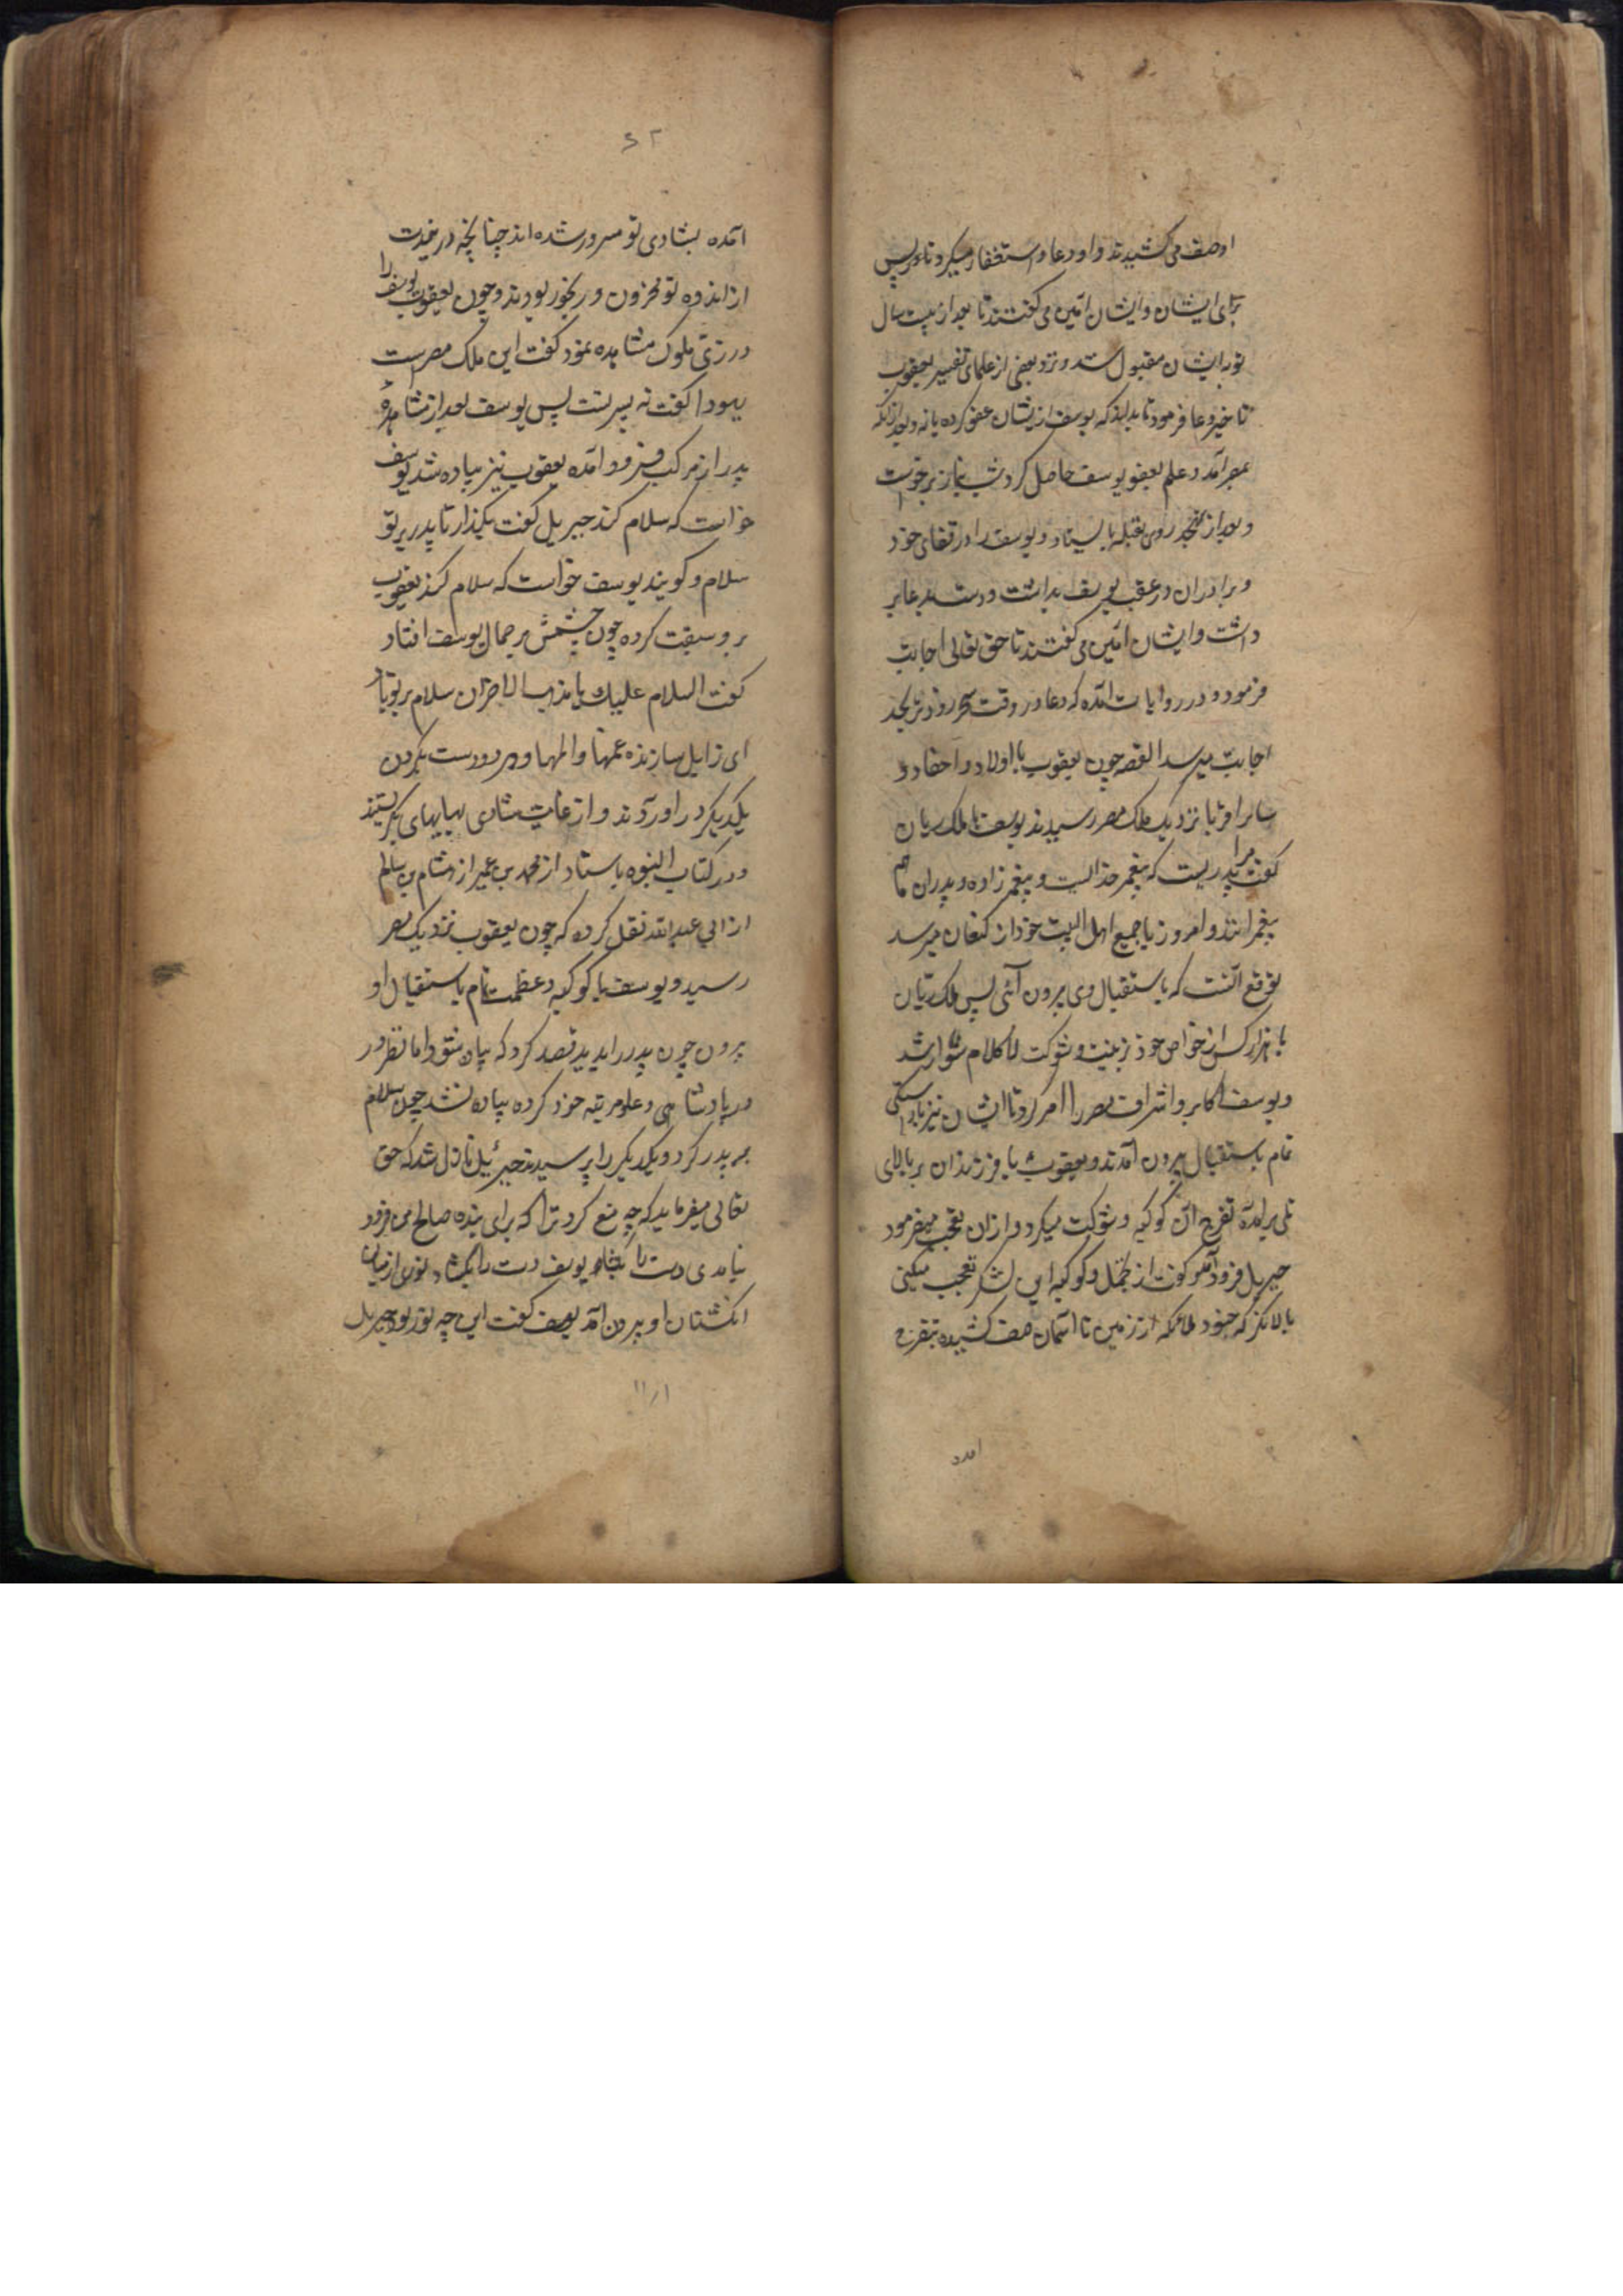 او صف می کشیدند و او دعا و استغفار میکرد تا درپس
برای ایشان و ایشان آمین می گفتند تا بعد از بیست سال
توبه ایشان مقبول شد و نزد بعضی از علمای تفسیر یعقوب
تاخیر دعا فرمود تا بداند که یوسف ازیشان عفو کرده یا نه و بعد ازانکه
بمصر آمد و علم بعفو یوسف حاصل کرد شب بنماز برخواست
و بعد از تهجد روی بقبله بایستاد و یوسف را در قفای خود
و برادران در عقب یوسف بداشت و دست بدعا بر
داشت و ایشان آمین می گفتند تا حق تعالی اجابت
فرمود و در روایات آمده که دعا در وقت سحر زودتر بحد
اجابت میرسد القصه چون یعقوب با اولاد و احفاد و
سایر اقربا نزدیک ملک مصر رسیدند یوسف با ملک ریان
گفت مرا پدریست که پیغمبر خداست و پیغمبر زاده و پدران ما هم
پیغمبرانند و امروز با جمیع اهل البیت خود از کنعان میرسد
توقع آنست که باستقبال وی بیرون آئی پس ملک ریان
با هزار کس از خواص خود بزینت و شوکت لاکلام سوار شد
و یوسف اکابر و اشراف مصر را امر کرد تا ایشان نیز باراستگی
تمام باستقبال بیرون آمدند و یعقوب با فرزندان بر بالای
تلی برآمده تفرج آن کوکبه و شوکت میکرد و ازان تعجب میفرمود
جبریل فرود آمد گفت از تجمل و کوکبه این لشکر تعجب میکنی
بالا نگر که جنود ملائکه از زمین تا آسمان صف کشیده بتفرج
آمده
۶۲
آمده بشادی تو مسرور شده اند چنانچه در مدت
از اندوه تو محزون و رنجور بودند و چون یعقوب یوسف را
در زی ملوک مشاهده نمود گفت این ملک مصر است
یهودا گفت نه پسر تست پس یوسف بعد از مشاهده
پدر از مرکب فرود آمده یعقوب نیز پیاده شد یوسف
خواست که سلام کند جبریل گفت بگذار تا پدر بر تو
سلام گویند یوسف خواست که سلام کند یعقوب
برو سبقت کرده چون چشمش بر جمال یوسف افتاد
گفت السلام علیک یا مذهب الاحزان سلام بر تو باد
ای زایل سازنده غمها و المها و هر دو دست بگردن
یکدیگر در آوردند و از غایت شادی بهایهای بگریستند
و در کتاب النبوه باسناد از محمد بن عمیر از هشام بن سالم
از ابی عبدالله نقل کرده که چون یعقوب نزدیک مصر
رسید و یوسف با کوکبه و عظمت تمام باستقبال او
بیرون چون پدر را بدید قصد کرد که پیاده شود اما نظر در
در پادشاهی و علو مرتبه خود کرده پیاده نشد چون سلام
بر پدر کرد و یکدیگر را پرسیدند جبرئیل نازل شد که حق
تعالی میفرماید که چه منع کرد ترا که برای بنده صالح من فرود
نیامدی دست را بگشا یوسف دست را بگشاد نوری از میان
انگشتان او بیرون آمد یوسف گفت این چه نور بود جبریل